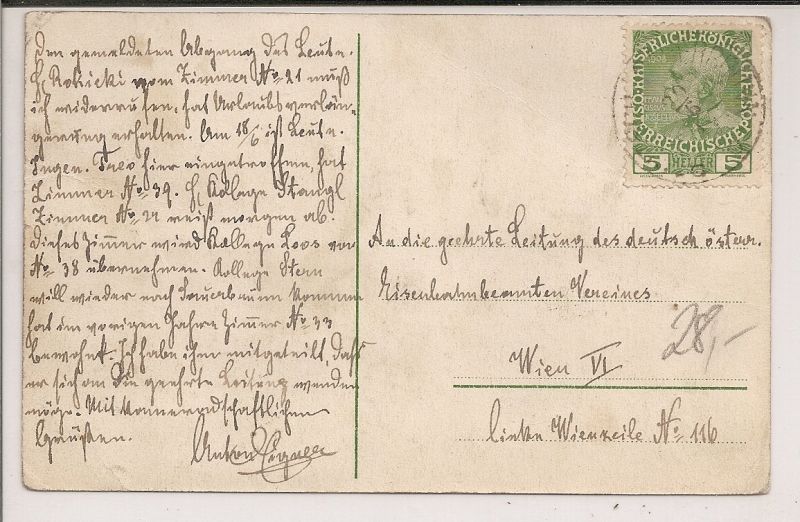 den gemeldeten Abgang des Leutn.
H. Rokicki vom Zimmer No 21 muß
ich widerrufen, hat Urlaubsverlän-
gerung erhalten. Am 18/6 ist Leutn.
Ingen. hier eingetroffen, hat
Zimmer No 39. H. Kollege Stangl
Zimmer No 22 reist morgen ab.
dieses Zimmer wird Kollege Loos von
No 38 übernehmen. Kollege Stern
will wieder nach kommen
hat im vorigen Jahre Zimmer No 33
bewohnt. Ich habe ihm mitgeteilt, dass
er sich an die geehrte Leitung wenden
möge. Mit kameradschaftlichen
Grüßen.
Anton
KAISERLICHE KÖNIGLICHE
ÖSTERREICHISCHE POST
1908
FRANCISCUS JOSEPHUS
5 HELLER 5
An die geehrte Leitung des deutsch österr.
Eisenbahnbeamten Vereines
Wien VI
linke Wienzeile No 116
28,-